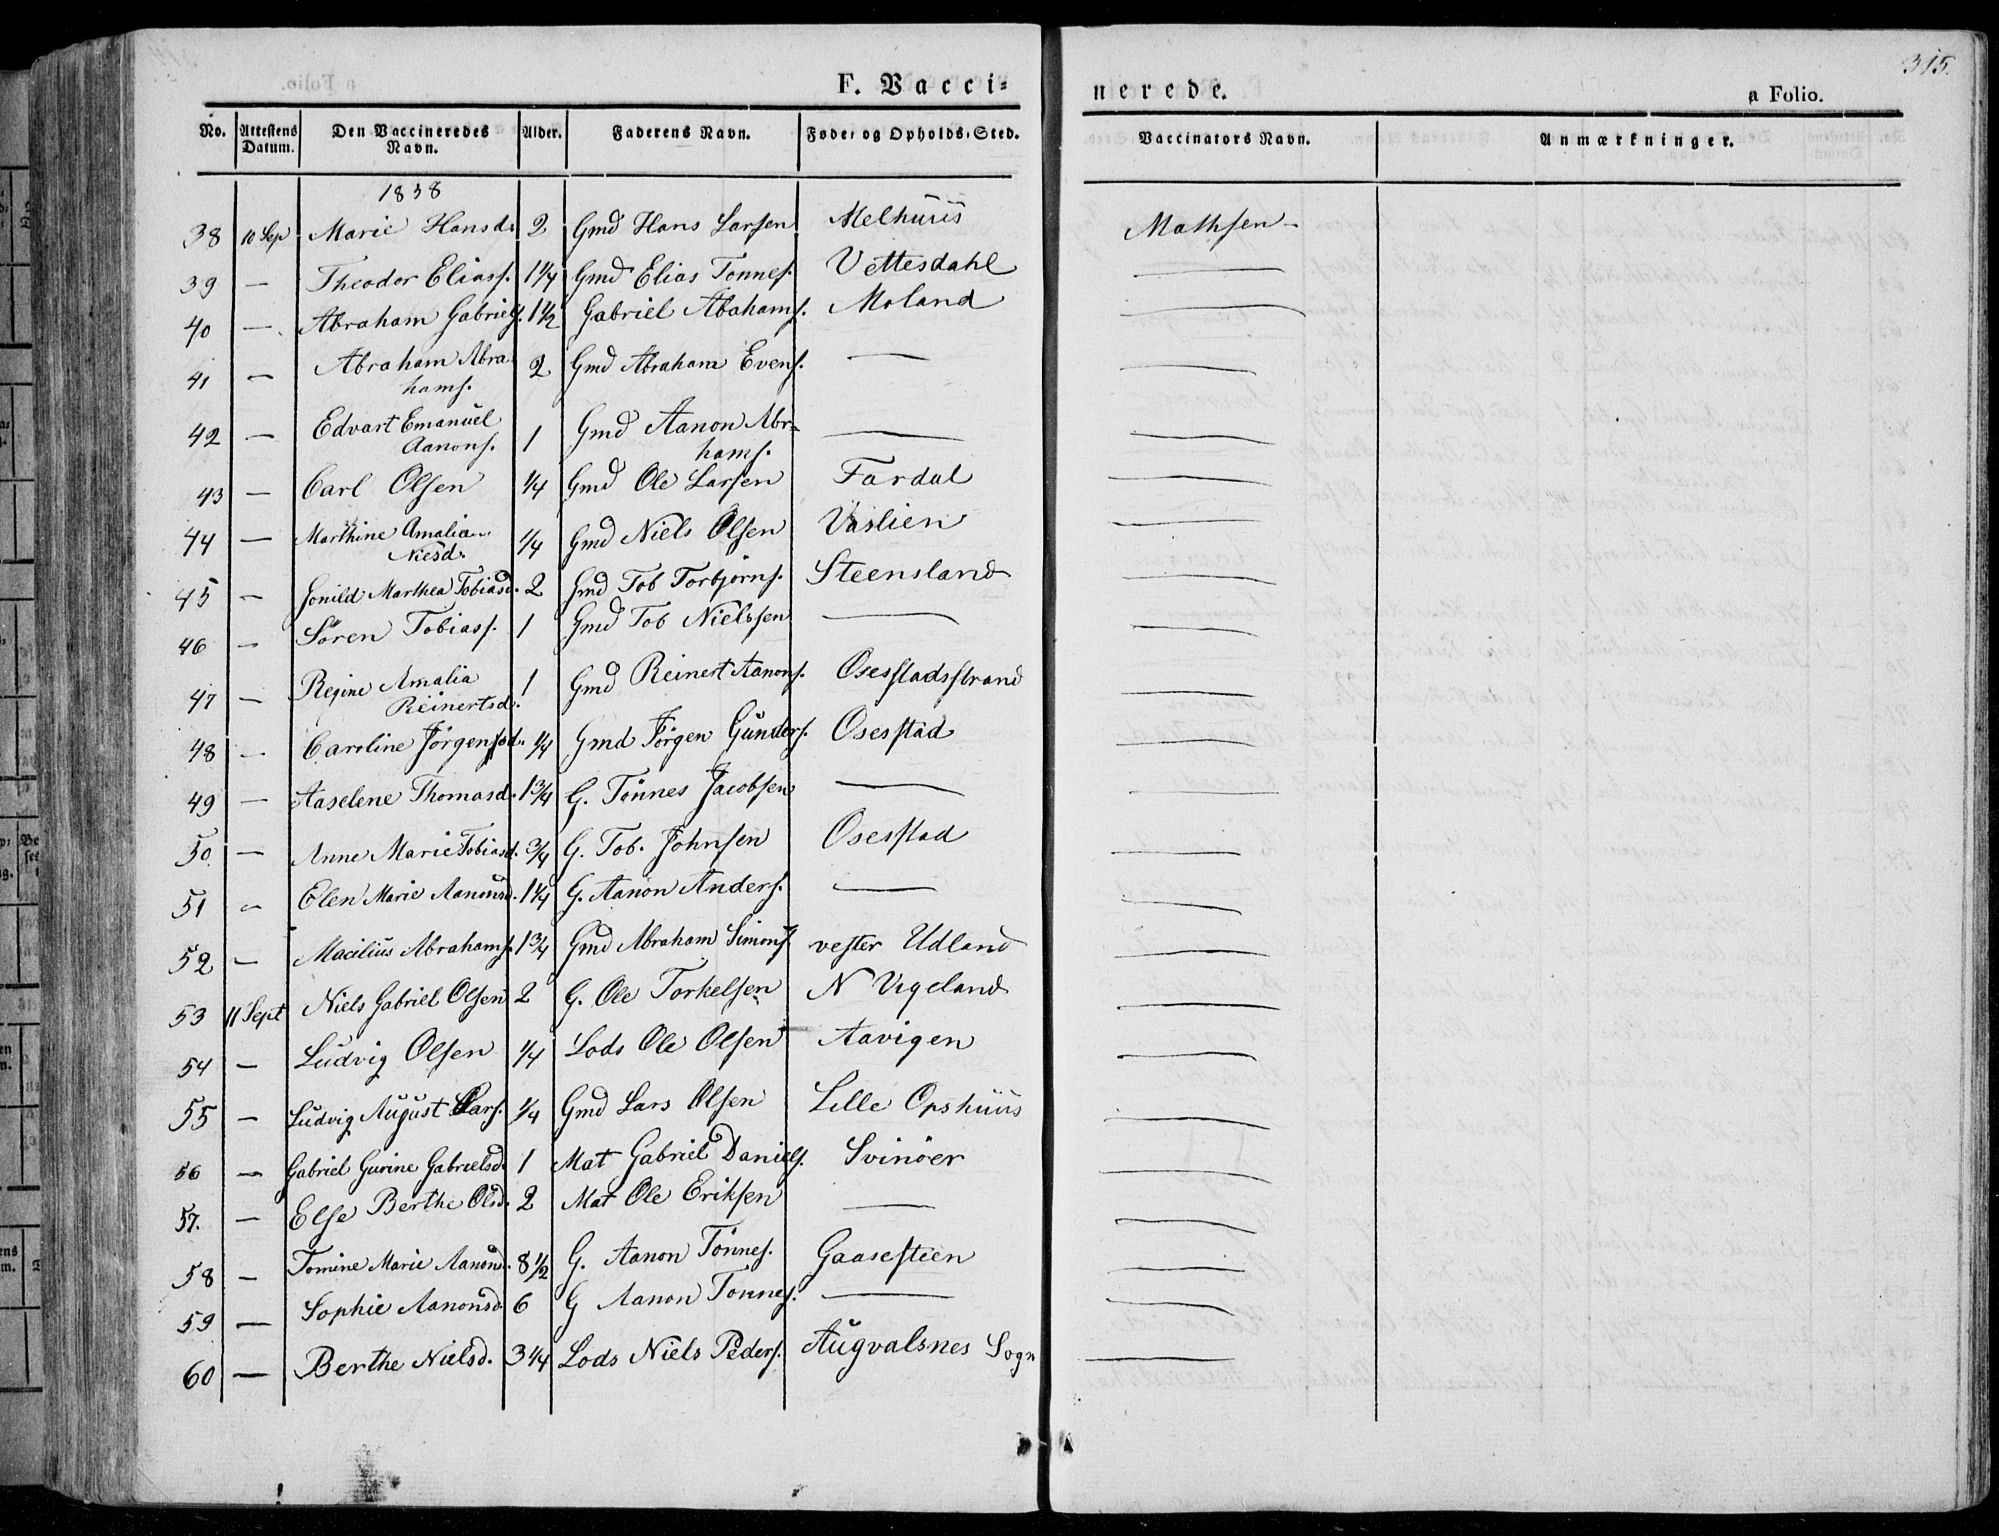 315.
F. Vacci-
nerede.
a Folio.
No. Attestens Datum. Den Vaccineredes Navn. Alder. Faderens Navn. Føde- og Opholds-Sted. Vaccinators Navn. Anmærkninger.
1838
38 10 Sep Marie Hansd. 2 Gmd Hans Larsen Melhuus Mathsen –
39 — Theodor Eliass. 1 1/4 Gmd Elias Tønnes. Vettesdahl —
40 — Abraham Gabriels. 1 1/2 Gabriel Abahams. Moland —
41 — Abraham Abra- 2 Gmd Abraham Evens. — —
hams.
42 — Edvart Emanuel Gmd Aanon Abr- — —
Aanons. 1 hams.
43 — Carl Olsen 1/4 Gmd Ole Larsen Fardal —
44 — Marthine Amalia 1/4 Gmd Niels Olsen Vaslien —
Niesd.
45 — Gonild Marthea Tobiasd. 2 Gmd Tob Torbjørns. Steensland —
46 — Søren Tobiass. 1 Gmd Tob Nielssen — —
47 — Regine Amalia 1 Gmd Reinert Aanons. Osesstadsstrand —
Reinertsd.
48 — Caroline Jørgensd. 1/4 Gmd Jørgen Gunders. Osesstad —
49 — Aaselene Thomasd. 1 3/4 G. Tønnes Jacobsen — —
50. — Anne Marie Tobiasd. 3/4 G. Tob. Johnsen Osesstad —
51 — Elen Marie Aanonsd. 1 1/4 G. Aanon Anders. — —
52 — Macilius Abrahams. 1 3/4 Gmd Abraham Simons. vester Udland —
53 11 Sept Niels Gabriel Olsen 2 G. Ole Torkelsen N Vigeland —
54 — Ludvig Olsen 1/4 Lods Ole Olsen Aavigen —
55 — Ludvig August Lars. 1/4 Gmd Lars Olsen Lille Opshuus —
56 — Gabriel Gurine Gabrielsd. 1 Mat Gabriel Daniels. Svinöer —
57. — Else Berthe Olsd. 2 Mat Ole Eriksen — —
58 — Tomine Marie Aanonsd. 8 1/2 G. Aanon Tønnes. Gaasestien —
59 — Sophie Aanonsd. 6 G Aanon Tønnes. — —
60 — Berthe Nielsd. 3 1/4 Lods Niels Peders. Augvalsnes Sogn —